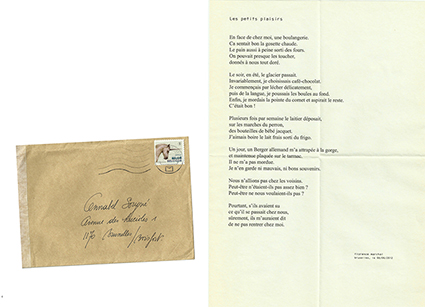 Les petits plaisirs
En face de chez moi, une boulangerie.
Ca sentait bon la gosette chaude.
Le pain aussi à peine sorti des fours.
On pouvait presque les toucher,
donnés à nous tout doré.
Le soir, en été, le glacier passait.
Invariablement, je choisissais café-chocolat.
Je commençais par lécher délicatement,
puis de la langue, je poussais les boules au fond.
Enfin, je mordais la pointe du cornet et aspirait le reste.
C'était bon !
Plusieurs fois par semaine le laitier déposait,
sur les marches du perron,
des bouteilles de bébé jacquet.
J'aimais boire le lait frais sorti du frigo.
Un jour, un Berger allemand m'a attrapée à la gorge,
et maintenue plaquée sur le tarmac.
Il ne m'a pas mordue.
Je n'en garde ni mauvais, ni bons souvenirs.
Nous n'allions pas chez les voisins.
Peut-être n'étaient-ils pas assez bien ?
Peut-être ne nous voulaient-ils pas ?
Pourtant, s'ils avaient su
ce qu'il se passait chez nous,
sûrement, ils m'auraient dit
de ne pas rentrer chez moi.
Annabel
Avenue des
1170 Bruxelles